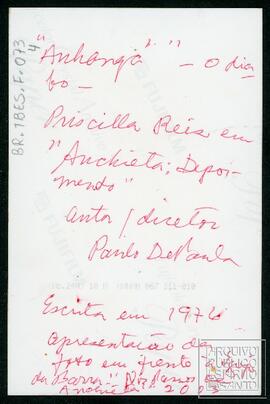 BR.IBES.F.073
4
"Anhangá" - o dia
bo -
Priscilla Reis em
"Anchieta: Depoi-
mento"
autor / diretor
Paulo DePaula
Escrita em 1974
apresentação da
foto em frente
da Barra
Anchieta 20
ARQUIVO
PÚBLICO
ESPÍRITO
SANTO